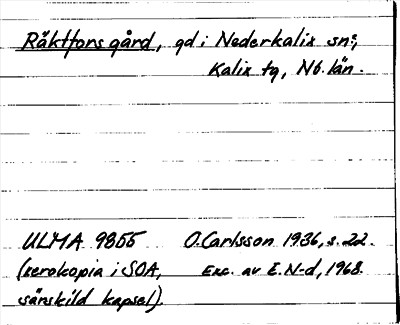 Räktfors gård, gd i Nederkalix sn;
Kalix tg, Nb. län.
ULMA 9855 O. Carlsson 1936, s. 22.
(xerokopia i SOA, Exc. av E. N-d, 1968.
särskild kapsel).